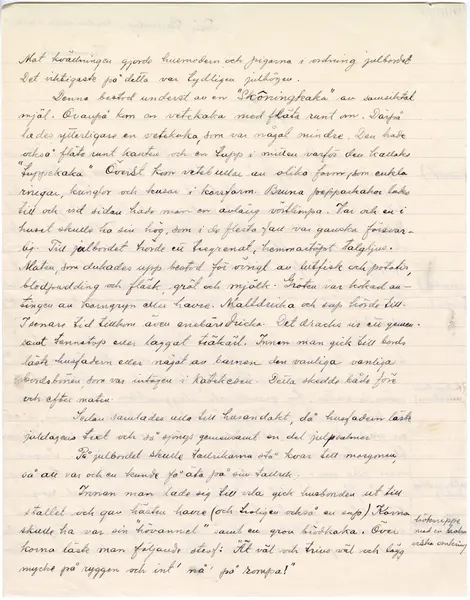 Mot kvällningen gjorde husmodern och pigorna i ordning julbordet.
Det viktigaste på detta var tydligen julhögen.
Denna bestod underst av en "Skåningkaka" av samsiktat
mjöl. Ovanpå kom en vetekaka med fläta runt om. Därpå
lades ytterligare en vetekaka, som var något mindre. Den hade
också fläta runt kanten och en tupp i mitten varför den kallades
"Tuppekaka". Överst kom vetebullar av olika form, som enkla
ringar, kringlor och kusar i korsform. Bruna pepparkakor lades
till och vid sidan hade man en avlång vörtlimpa. Var och en i
huset skulle ha sin hög, som i de flesta fall var ganska försvar-
lig. Till julbordet hörde ett tregrenat, hemmastöpt talgljus.
Maten, som dukades upp bestod för övrigt av lutfisk och potatis,
blodpudding och fläsk, gröt och mjölk. Gröten var kokad an-
tingen av korngryn eller havre. Maltdricka och sup hörde till.
I senare tid tillkom även enebärsdricka. Det dracks ur ett gemen-
samt tennstop eller laggat träkärl. Innan man gick till bords
läste husfadern eller något av barnen den vanliga
bordsbönen som var intagen i katekesen. Detta skedde både före
och efter maten.
Sedan samlades alla till husandakt, då husfadern läste
juldagens text och så sjöngs gemensamt en del julpsalmer.
På julbordet skulle tallrikarna stå kvar till morgonen,
så att var och en kunde få äta på sin tallrik.
Innan man lade sig till vila gick husbonden ut till
stallet och gav hästen havre (och troligen också en sup). Korna
skulle ha var sin "hövannel" samt en grov brödkaka. Över
korna läste man följande stef: "Ät väl och trivs väl och lägg
mycke på ryggen och int' nå' på rompa!"